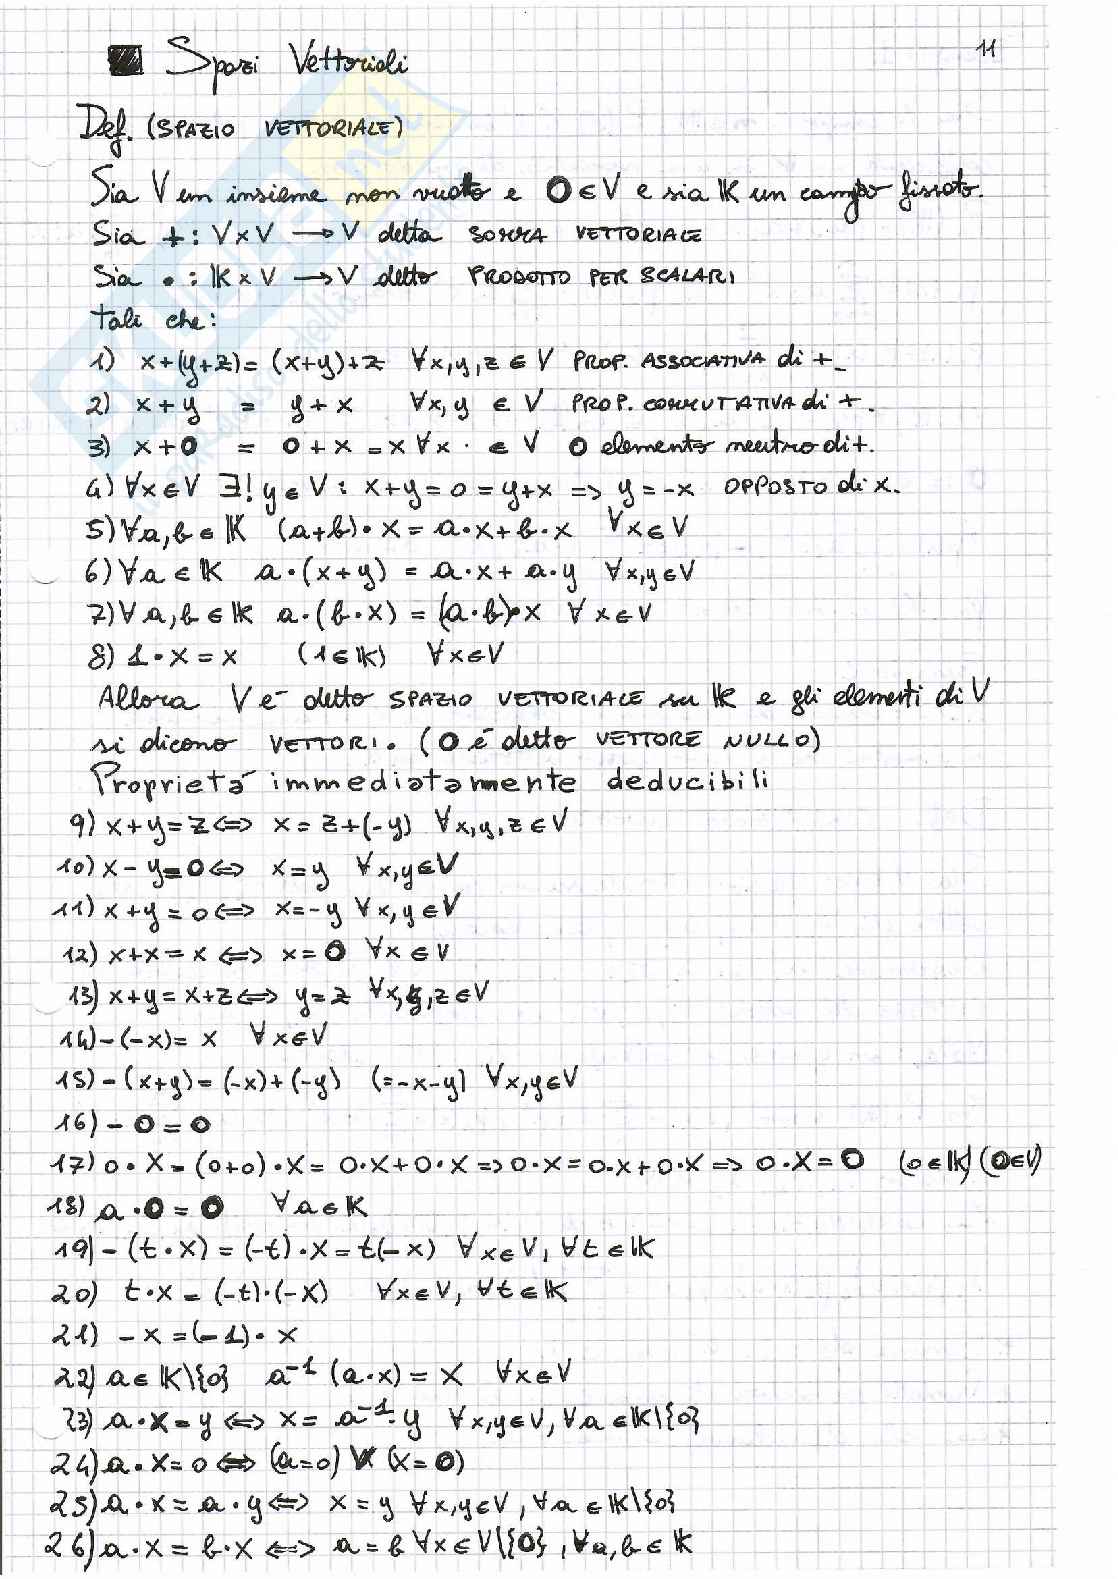 11
Spazi Vettoriali
Def. (SPAZIO VETTORIALE)
Sia V un insieme non vuoto e 0 ∈ V e sia 𝕂 un campo fissato.
Sia + : V × V → V detta SOMMA VETTORIALE
Sia • : 𝕂 × V → V detto PRODOTTO PER SCALARI
tali che:
1) x+(y+z) = (x+y)+z ∀x,y,z ∈ V PROP. ASSOCIATIVA di +.
2) x+y = y+x ∀x,y ∈ V PROP. COMMUTATIVA di +.
3) x+0 = 0+x = x ∀x ∈ V 0 elemento neutro di +.
4) ∀x∈V ∃! y∈V : x+y=0=y+x => y=-x OPPOSTO di x.
5) ∀a,b ∈ 𝕂 (a+b)•x = a•x+b•x ∀x∈V
6) ∀a ∈ 𝕂 a•(x+y) = a•x+a•y ∀x,y∈V
7) ∀a,b ∈ 𝕂 a•(b•x) = (a•b)•x ∀x∈V
8) 1•x = x (1∈𝕂) ∀x∈V
Allora V é detto SPAZIO VETTORIALE su 𝕂 e gli elementi di V
si dicono VETTORI. (0 é detto VETTORE NULLO)
Proprietá immediatamente deducibili
9) x+y=z <=> x=z+(-y) ∀x,y,z∈V
10) x-y=0 <=> x=y ∀x,y∈V
11) x+y=0 <=> x=-y ∀x,y∈V
12) x+x=x <=> x=0 ∀x∈V
13) x+y=x+z <=> y=z ∀x,y,z∈V
14) -(-x)=x ∀x∈V
15) -(x+y)=(-x)+(-y) (=-x-y) ∀x,y∈V
16) -0=0
17) 0•x=(0+0)•x=0•x+0•x => 0•x=0•x+0•x => 0•x=0 (0∈𝕂) (0∈V)
18) a•0=0 ∀a∈𝕂
19) -(t•x)=(-t)•x=t(-x) ∀x∈V, ∀t∈𝕂
20) t•x=(-t)•(-x) ∀x∈V, ∀t∈𝕂
21) -x=(-1)•x
22) a∈𝕂\{0} a⁻¹(a•x)=x ∀x∈V
23) a•x=y <=> x=a⁻¹•y ∀x,y∈V, ∀a∈𝕂\{0}
24) a•x=0 <=> (a=0) V (x=0)
25) a•x=a•y <=> x=y ∀x,y∈V, ∀a∈𝕂\{0}
26) a•x=b•x <=> a=b ∀x∈V\{0}, ∀a,b∈𝕂